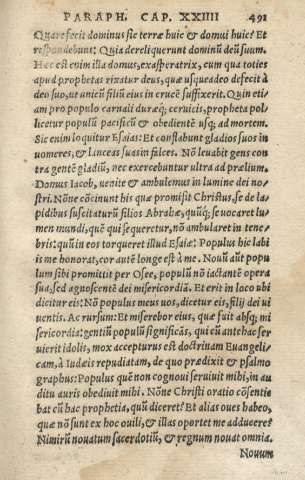 PARAPH. CAP. XXIIII 491
Quare fecit dominus sic terræ huic & domui huic? Et
respondebunt: Quia dereliquerunt dominũ deũ suum.
Hec est enim illa domus, exasperatrix, cum qua toties
apud prophetas rixatur deus, quæ usqueadeo defecit à
deo suo, ut unicũ filiũ eius in crucẽ suffixerit. Quin eti-
am pro populo carnali duræq; ceruicis, propheta pol
licetur populũ pacificũ & obedientẽ usq; ad mortem.
Sic enim loquitur Esaias: Et conflabunt gladios suos in
uomeres, & lanceas suas in falces. Nõ leuabit gens con
tra gentẽ gladiũ, nec exercebuntur ultra ad prælium.
Domus Iacob, uenite & ambulemus in lumine dei no-
stri. Nõne cõcinunt his quæ promisit Christus, se de la-
pidibus suscitaturũ filios Abrahæ, quũq; se uocaret lu-
men mundi, quẽ qui sequeretur, nõ ambularet in tene-
bris: quũ in eos torqueret illud Esaiæ: Populus hic labi
is me honorat, cor autẽ longe est à me. Nouũ aũt popu
lum sibi promittit per Osee, populũ nõ iactantẽ opera
sua, sed agnoscentẽ dei misericordiã. Et erit in loco ubi
dicitur eis: Nõ populus meus uos, dicetur eis, filij dei ui
uentis. Ac rursum: Et miserebor eius, quæ fuit absq; mi
sericordia: gentiũ populũ significãs, qui cũ antehac ser
uierit idolis, mox accepturus est doctrinam Euangeli-
cam, à Iudæis repudiatam, de quo prædixit & psalmo
graphus: Populus quẽ non cognoui seruiuit mihi, in au
ditu auris obediuit mihi. Nõne Christi oratio cõsentie
bat cũ hac prophetia, quũ diceret? Et alias oues habeo,
quæ nõ sunt ex hoc ouili, & illas oportet me adducere?
Nimirũ nouatum sacerdotiũ, & regnum nouat omnia.
Nouum